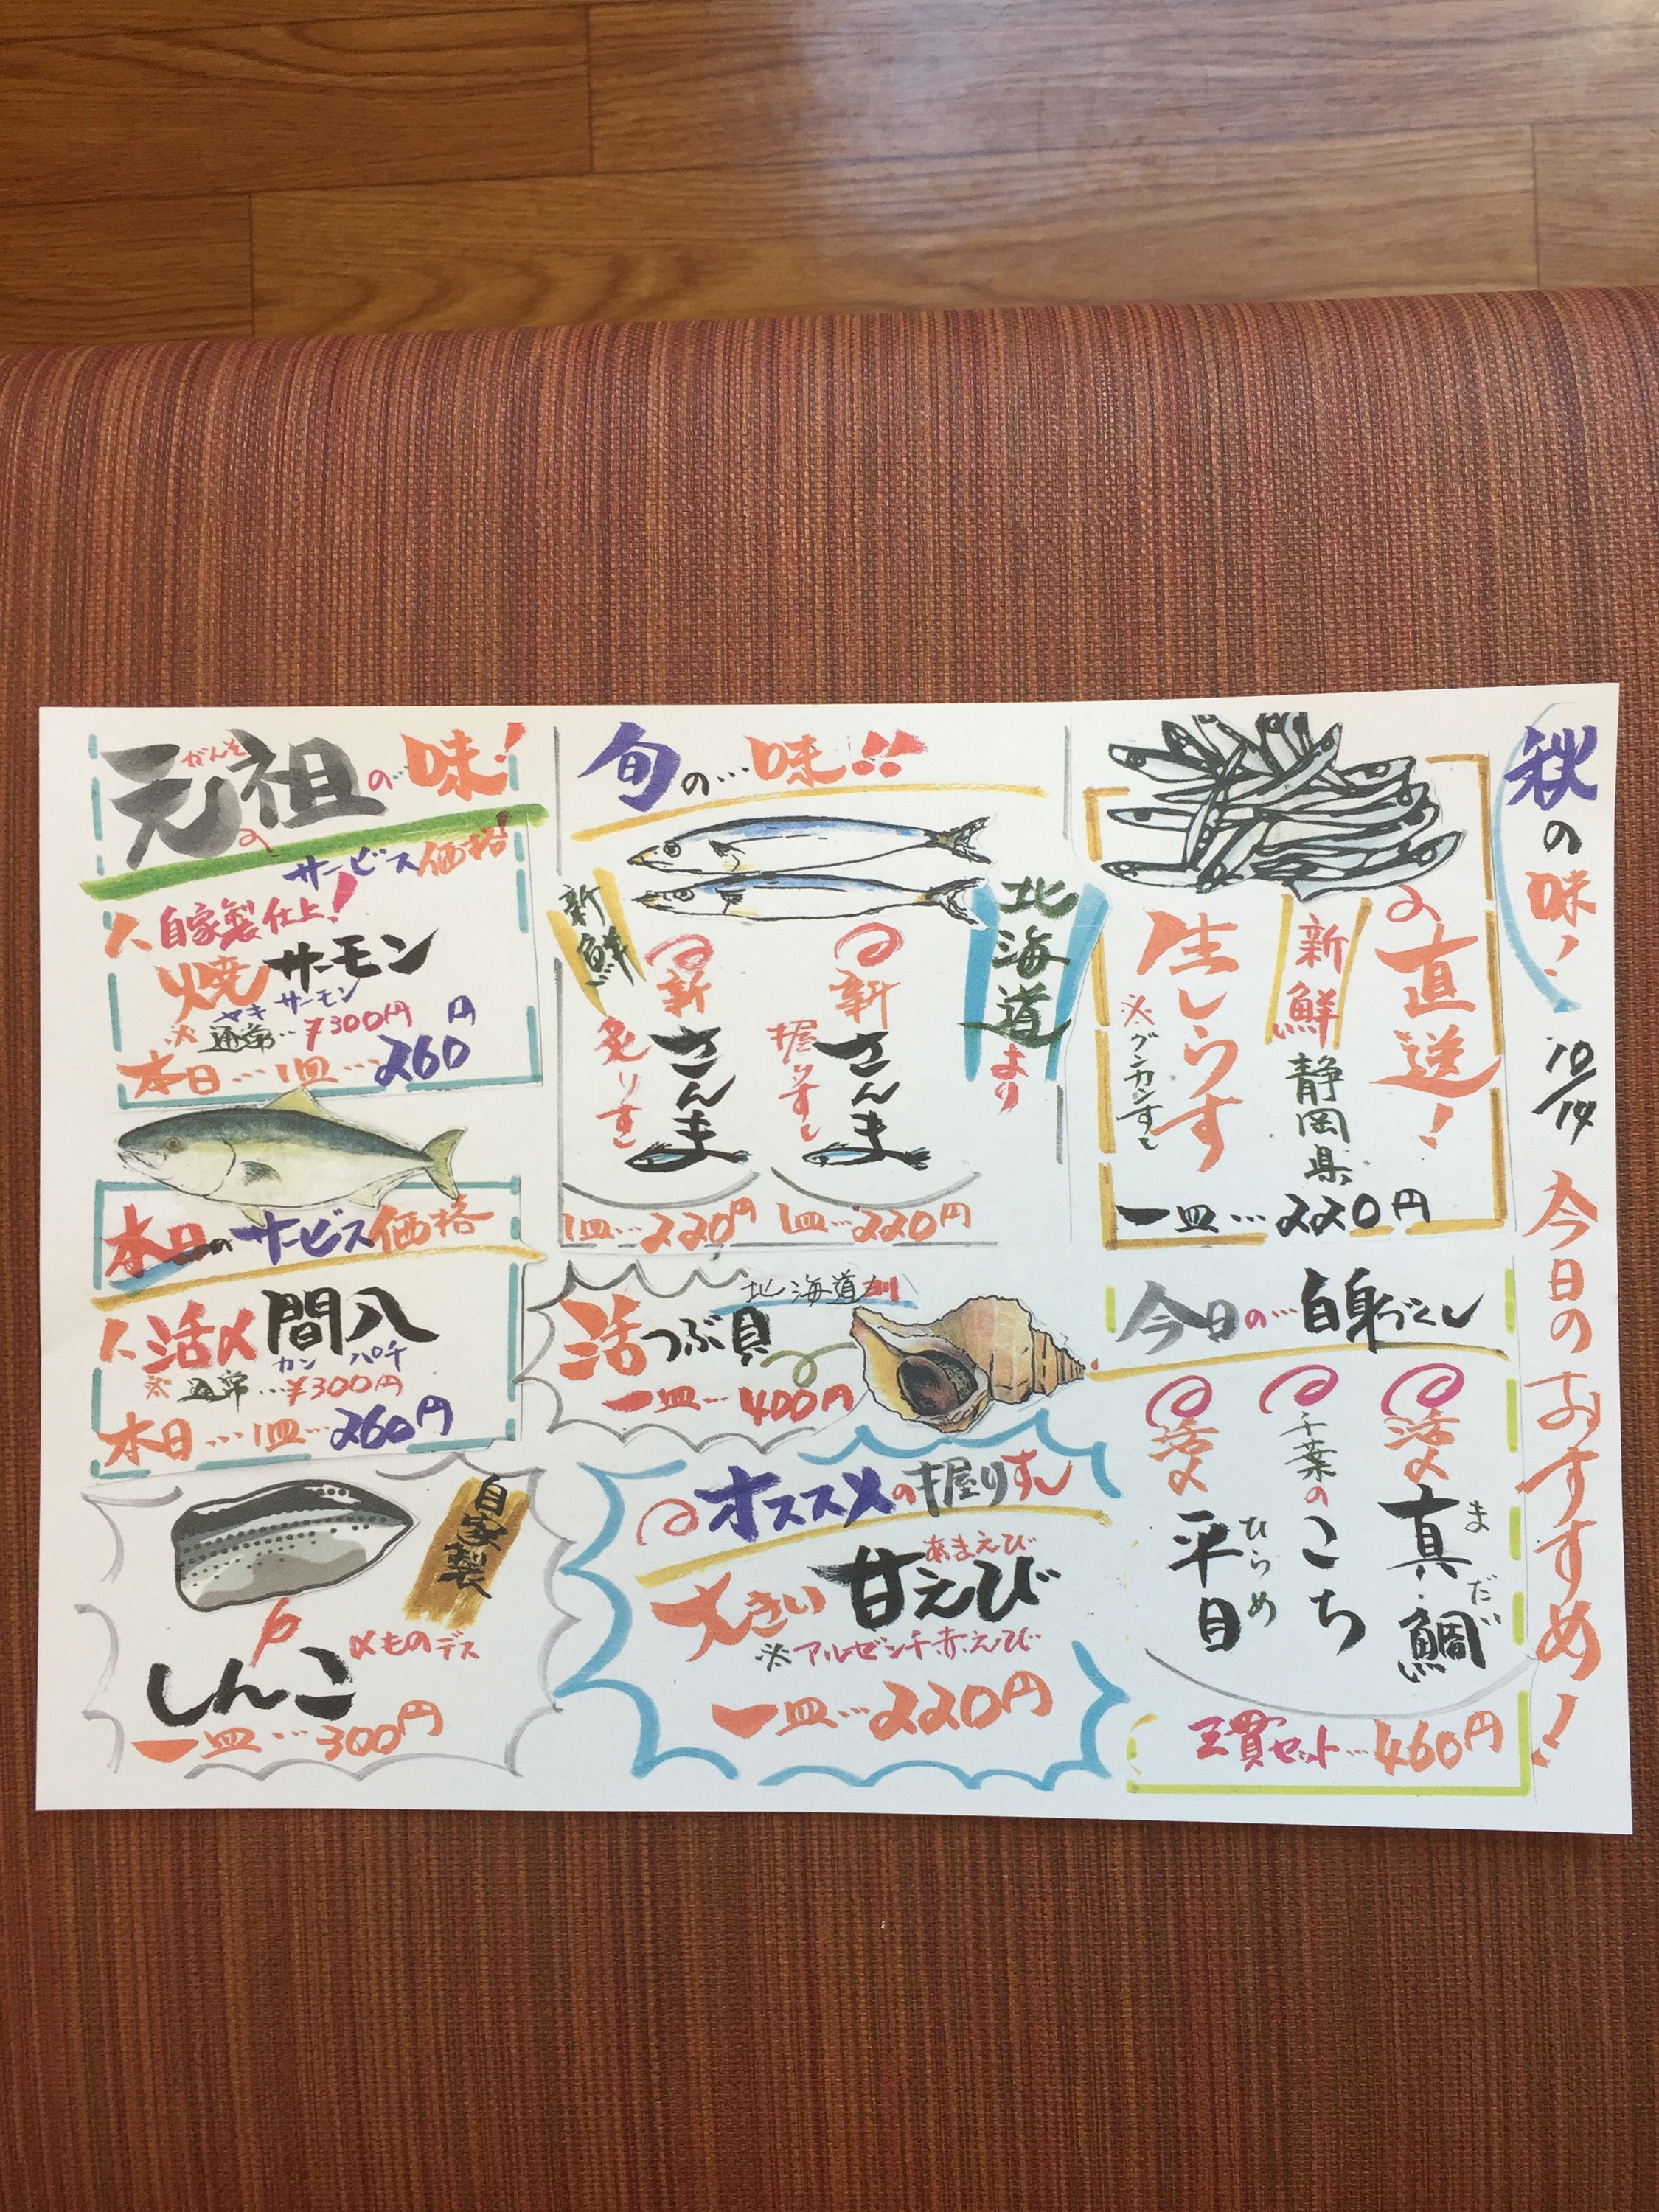 秋の味! 10/14 今日のおすすめ!
直送!
新鮮 静岡県
生しらす
※グンカンすし
一皿…220円
今日の…白身づくし
活〆 真鯛
まだい
千葉の こち
活〆 平目
ひらめ
三貫セット…460円
旬の…味!!
北海道より
新鮮
新さんま 握りすし
1皿…220円
新さんま 炙りすし
1皿…220円
北海道
活つぶ貝
一皿…400円
オススメの握りすし
あまえび
大きい 甘えび
※アルゼンチ赤えび
一皿…220円
がんそ
元祖の…味!
サービス価格!
自家製仕上!
焼サーモン
ヤキサーモン
※通常…¥300円
本日…1皿…260円
本日のサービス価格
活〆 間八
カンパチ
※通常…¥300円
本日…1皿…260円
自家製
しんこ
〆ものデス
一皿…300円